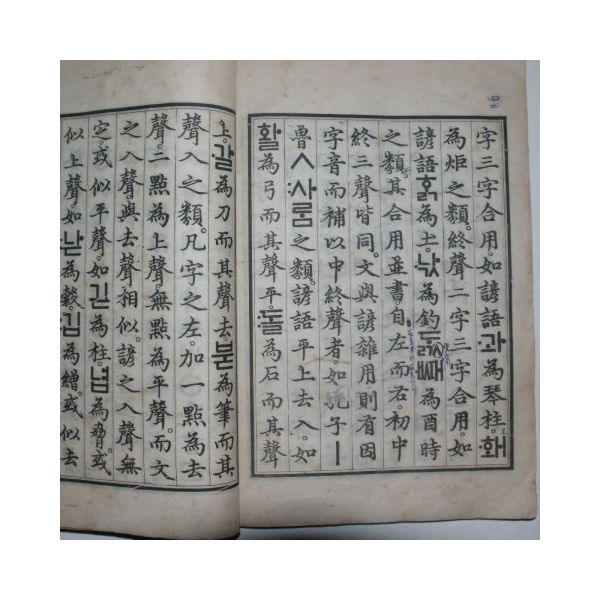 字三字合用。如諺語・과為琴柱。・홰
為炬之類。終聲二字三字合用。如
諺語흙為土。・낛為釣。
為酉時
之類。其合用並書。自左而右。初中
終三聲皆同。文與諺雜用則有因
字音而補以中終聲者。如孔子ㅣ
魯ㅅ:사ᄅᆞᆷ之類。諺語平上去入。如
활為弓而其聲平。:돌為石而其聲
上。・갈為刀而其聲去。붇為筆而其
聲入之類。凡字之左。加一點為去
聲。二點為上聲。無點為平聲。而文
之入聲。與去聲相似。諺之入聲無
定。或似平聲。如긷為柱。녑為脅。或
似上聲。如:낟為穀。:깁為繒。或似去